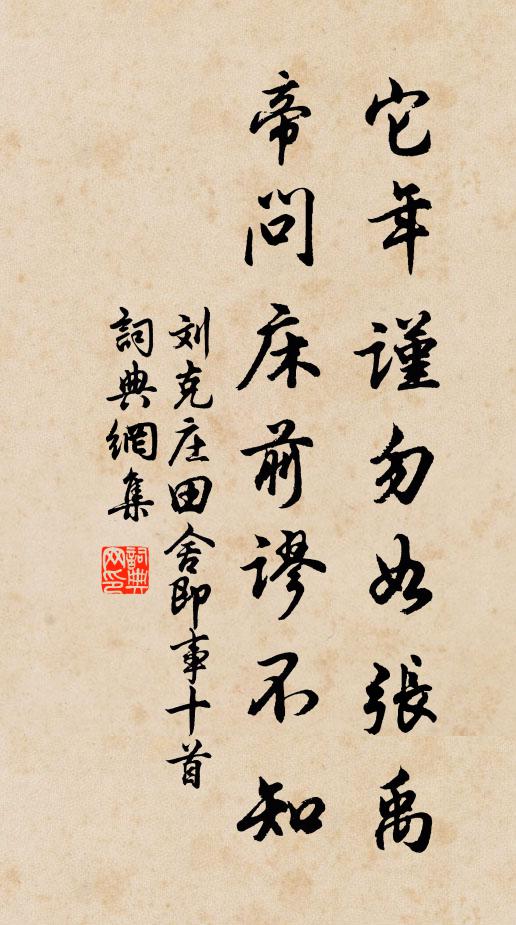 它年谨勿如張禹
帝問床前謬不知
刘克庄田舍即事十首
詞典網集
詞典网印